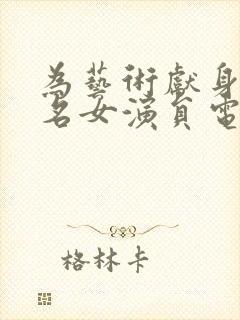 為藝術獻身
名女演員電
格林卡